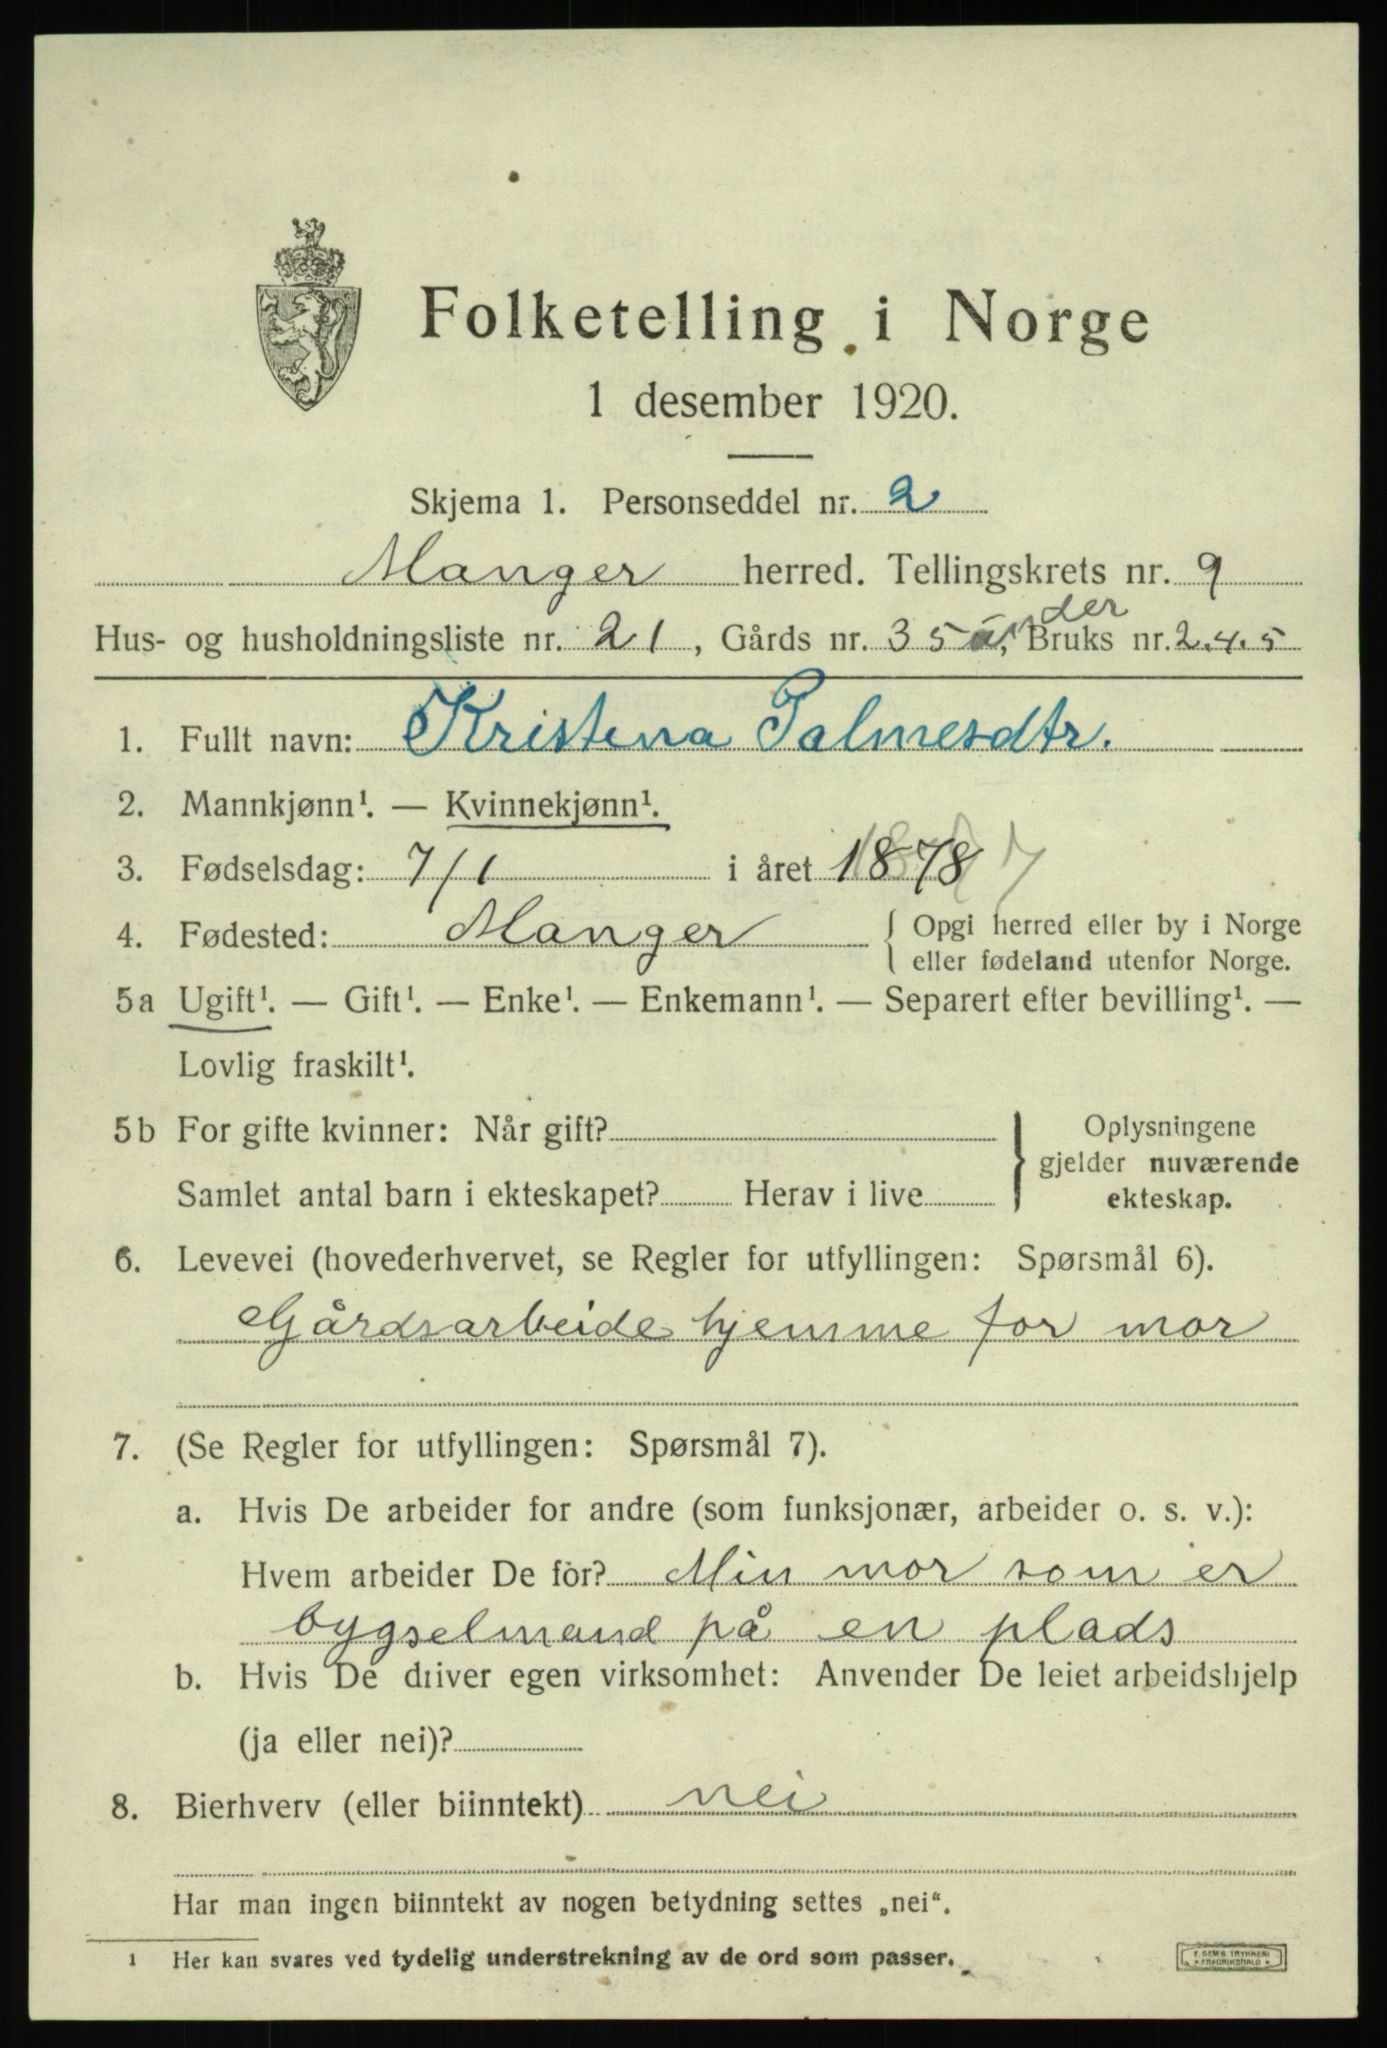 Folketelling i Norge
1 desember 1920.
Skjema 1. Personseddel nr. 2
Manger herred. Tellingskrets nr. 9
Hus- og husholdningsliste nr. 21, Gårds nr. 35 under, Bruks nr. 2.4.5
1. Fullt navn: Kristina Salmesdtr.
2. Mannkjønn¹. — Kvinnekjønn¹.
3. Fødselsdag: 7/1 i året 1878
4. Fødested: Manger { Opgi herred eller by i Norge
eller fødeland utenfor Norge.
5a Ugift¹. — Gift¹. — Enke¹. — Enkemann¹. — Separert efter bevilling¹. —
Lovlig fraskilt¹.
5b For gifte kvinner: Når gift? } Oplysningene
gjelder nuværende
Samlet antal barn i ekteskapet? Herav i live ekteskap.
6. Levevei (hovederhvervet, se Regler for utfyllingen: Spørsmål 6).
Gårdsarbeide hjemme for mor
7. (Se Regler for utfyllingen: Spørsmål 7).
a. Hvis De arbeider for andre (som funksjonær, arbeider o. s. v.):
Hvem arbeider De for? Min mor som er
bygselmand på en plads
b. Hvis De driver egen virksomhet: Anvender De leiet arbeidshjelp
(ja eller nei)?
8. Bierhverv (eller biinntekt) nei
Har man ingen biinntekt av nogen betydning settes „nei".
1 Her kan svares ved tydelig understrekning av de ord som passer.